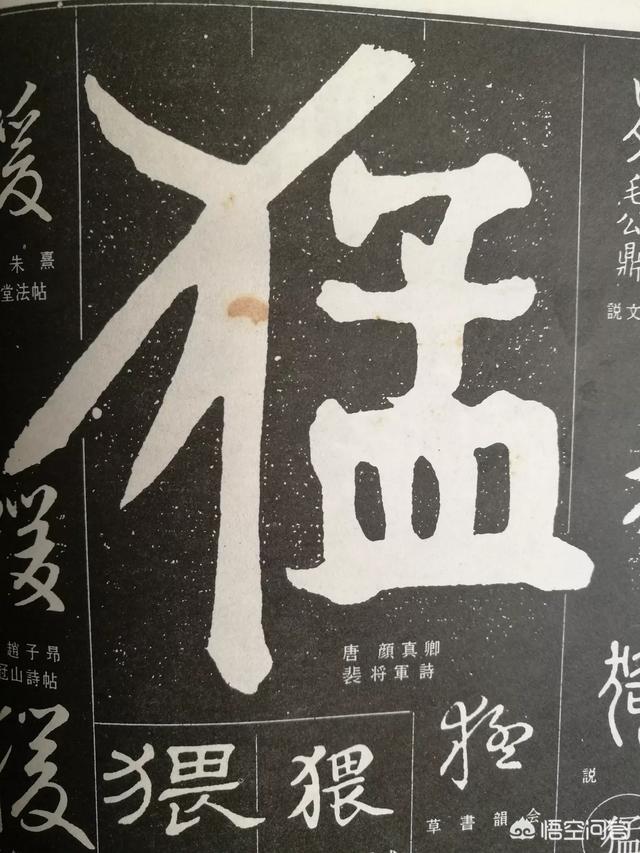 朱熹
堂法帖
趙子昂
山詩帖
猛
唐 顔真卿
裴将軍詩
猥
猥
猛
草書韻会
毛公鼎
説文
説
猛
悟空问答